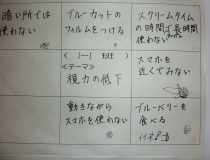 暗い所では
使わない
ブルーカットの
フィルムをつける
スクリームタイム
の時間で長時間
使わない
(1-1 班)
≪テーマ≫
視力の低下
スマホを
近くでみない
動きながら
スマホを使わない
ブルーベリーを
食べる